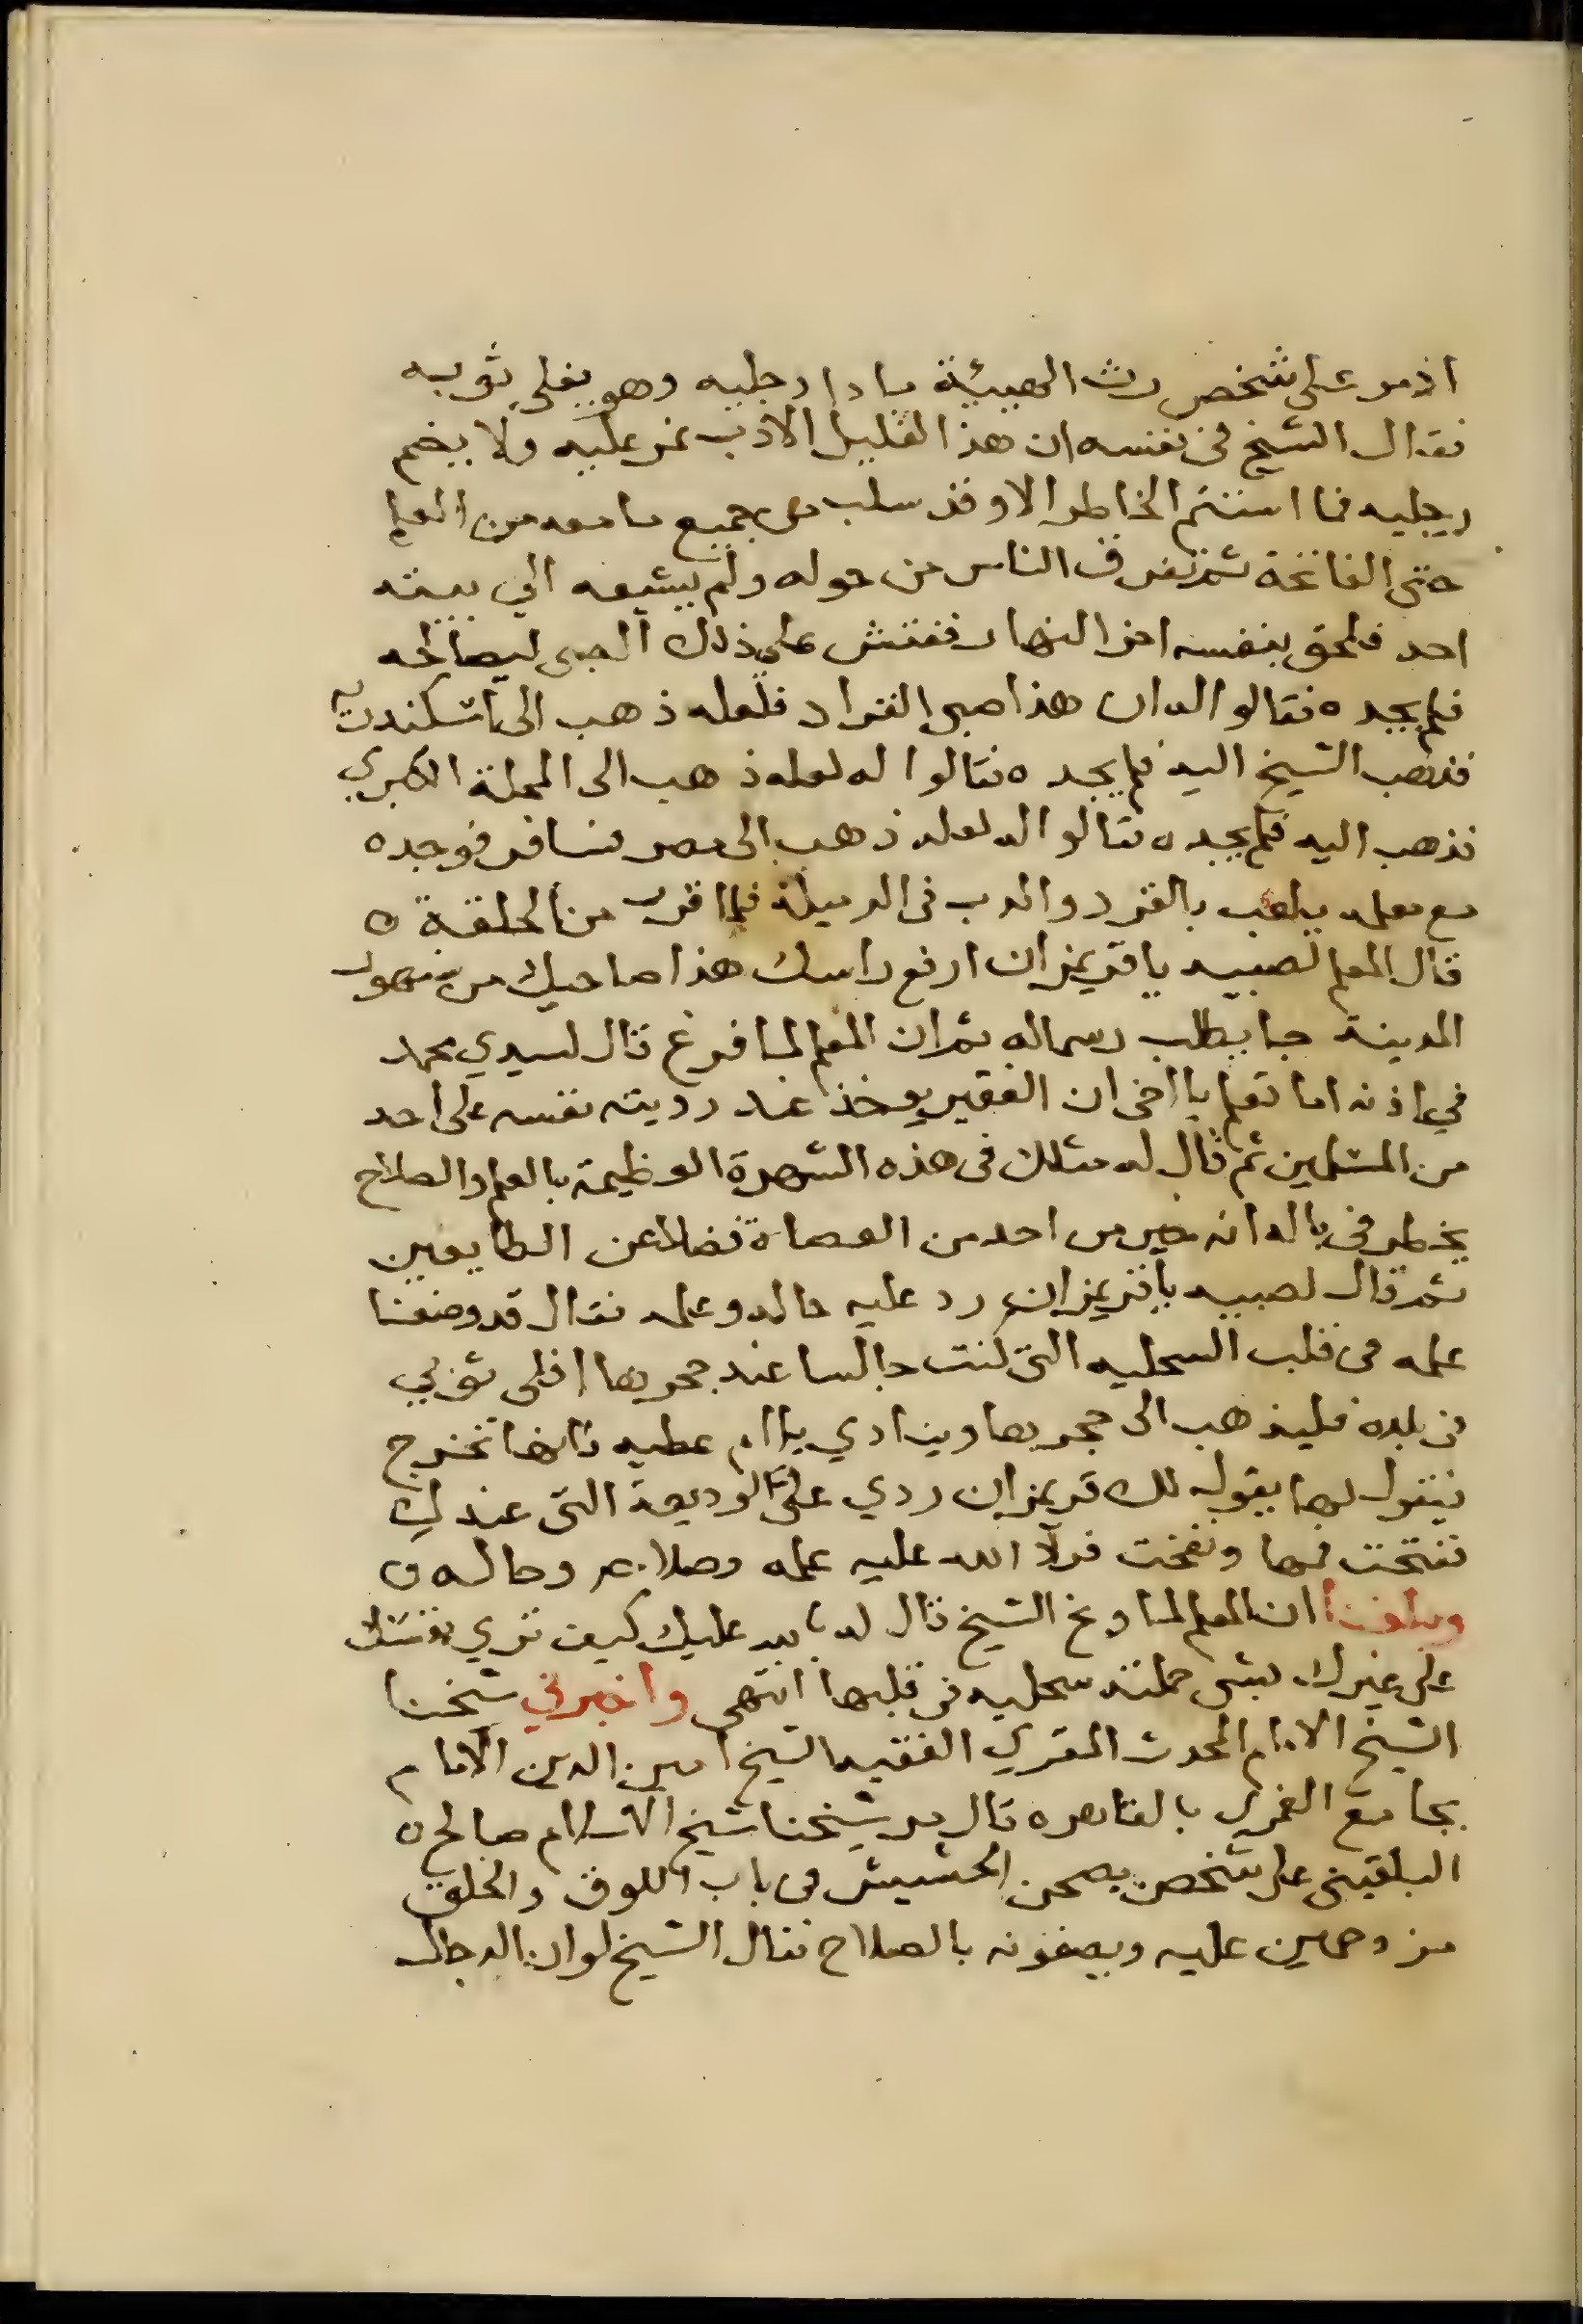 اذ مر على شخص رث الهيئة مادا رجليه وهو يفلي ثوبه
فقال الشيخ في نفسه ان هذا القليل الادب نمر عليه ولا يضم
رجليه فما استتم الخاطر الا وقد سلب من جميع ما معه من العلم
حتى الفاتحة ثم تفرق الناس من حوله ولم يشيعه الي بيته
احد فلحق بنفسه اخر النهار ففتش على ذلك الصبى ليصالحه
فلم يجده فقالوا له ان هذا صبى القراد فلعله ذهب الى اسكندرية
فذهب الشيخ اليه فلم يجده فقالوا له لعله ذهب الى المحلة الكبري
فذهب اليه فلم يجده فقالوا له لعله ذهب الى مصر فسافر فوجده
مع معلمه يلعب بالقرد والدب فى الرميلة فلما قرب من الحلقة ه
قال المعلم لصبيه يا قريمزان ارفع راسك هذا صاحبك من سنهور
المدينة جا يطلب رسماله ثم ان المعلم لما فرغ قال لسيدي محمد
في اذنه اما تعلم يا اخى ان الفقير يوخذ عند رويته نفسه على احد
من المسلمين ثم قال له مثلك فى هذه الشهرة العظيمة بالعلم والصلاح
يخطر فى باله انه خير من احد من العصاة فضلا عن الطايعين
ثم قال لصبيه يا قريمزان رد عليه حاله وعلمه فقال قد وضعنا
علمه فى قلب السحليه التى كنت جالسا عند جحرها افلى ثوبي
فى بلده فليذهب الى جحرها وينادي يا ام عطيه فانها تخرج
فيقول لها يقول لك قريمزان ردي على الوديعة التى عندك
ففتحت فمها ونفخت فرد الله عليه علمه وصلاحه وحاله ه
وبلغنا ان المعلم لما وبخ الشيخ قال له بالله عليك كيف تري نفسك
على غيرك بشى حملته سحليه فى قلبها انتهى واخبرني شيخنا
الشيخ الامام المحدث المقري الفقيه الشيخ امين الدين الامام
بجامع الغمري بالقاهره قال مر شيخنا شيخ الاسلام صالح ه
البلقينى على شخص يصحن الحشيش فى باب اللوق والخلق
مزدحمين عليه ويصفونه بالصلاح فقال الشيخ لو ان الدجال